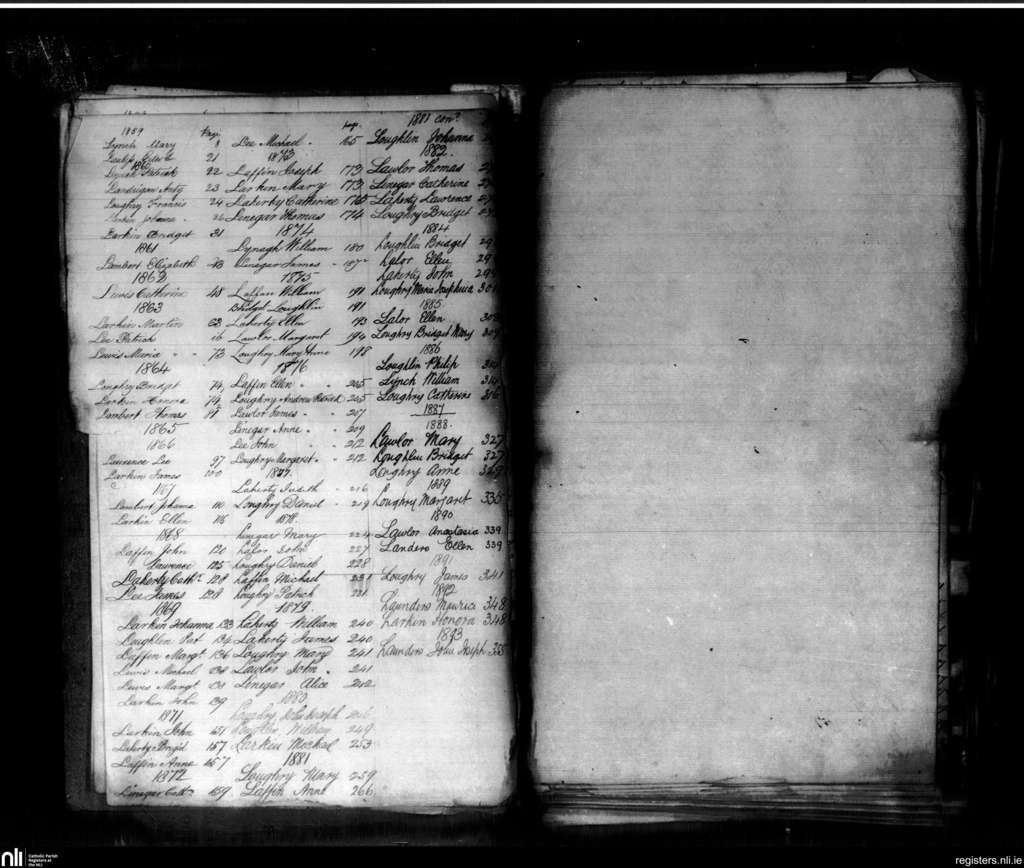 1859
Page
Lynch Mary 8
21
Patrick 22
23
Loughry Francis 24
Larkin Johanna 26
Larkin Bridget 31
1861
Lambert Elizabeth
1862
Lewis Catherine 48
1863
Larkin Martin 63
Lee Patrick
Lewis Maria 73
1864
Loughry Bridget 74
Larkin Honora 74
Lambert Thomas
1865
1866
Lawrence Lee 97
Larkin James 100
Lambert Johanna 110
Larkin Ellen 116
1868
Laffin John 120
Lawrence 125
Laherty Cathe 128
Lee James 128
1869
Larkin Johanna 133
Loughlin Pat 134
Laffin Margt 136
Lewis Michael
Lewis Margt
Larkin John 139
1871
Larkin John 151
Laherty Brigid 157
Laffin Anne 157
1872
Linegar Cathe 159
page
Lee Michael 165
1873
Laffin Joseph 173
Larkin Mary 173
Laherty Catherine
Linegar Thomas 174
1874
Lynagh William 180
Linegar James
1875
Laffan William 191
Bridget Loughlin 191
Laherty Ellen 193
Lawlor Margaret 194
Loughry Mary Anne 198
1876
Laffin Ellen 205
Loughry Andrew Patrick 205
Lawlor James 207
Linegar Anne 209
Lee John 212
Loughry Margaret 212
1877
Laherty Judith 216
Loughry Daniel 219
1878
Linegar Mary 224
Lalor John 227
Loughry Daniel 228
Laffin Michael 231
Loughry Patrick 231
1879
Laherty William 240
Laherty James 240
Loughry Mary 241
Lawlor John 241
Linegar Alice 242
1880
Loughry John Joseph 246
Loughlin William 249
Larkin Michael 253
1881
Loughry Mary 259
Laffin Anne 266
1881 con.d
Loughlin Johanna
1882
Lawlor Thomas
Linegar Catherine
Laherty Lawrence
Loughry Bridget
1884
Loughlin Bridget 29
Lalor Ellen 29
Laherty John 299
Loughry Maria Josephina 301
1885
Lalor Ellen
Loughry Bridget Mary 309
1886
Loughlin Philip 314
Lynch William 314
Loughry Catherine 316
1887
1888
Lawlor Mary 327
Loughlin Bridget 327
Loughry Anne 329
1889
Loughry Margaret 335
1890
Lawlor Anastasia 339
Landers Ellen 339
1891
Loughry James 341
1892
Launders Maurice 348
Larkin Honora 348
1893
Launders John Joseph 35
nli
Catholic Parish
Registers at
the NLI
registers.nli.ie